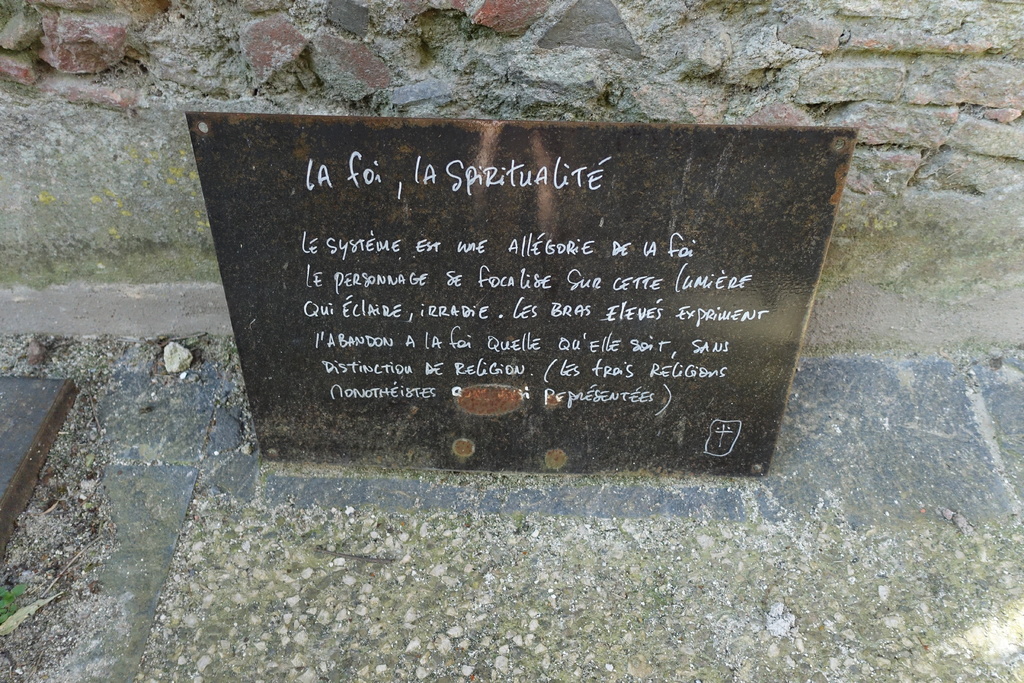 LA foi, LA SPIRITUALITÉ
LE SYSTÈME EST UNE ALLÉGORIE DE LA foi
LE PERSONNAGE SE FOCALISE SUR CETTE LUMIÈRE
QUI ÉCLAIRE, IRRADIE. LES BRAS ELEVÉS EXPRIMENT
l'ABANDON A LA foi QUELLE QU'ELLE SOIT, SANS
DISTINCTION DE RELIGION. (LES TROIS RELIGIONS
MONOTHÉISTES REPRÉSENTÉES)